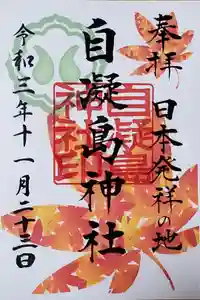 奉拝
日本発祥の地
自凝島神社
令和三年十一月二十三日